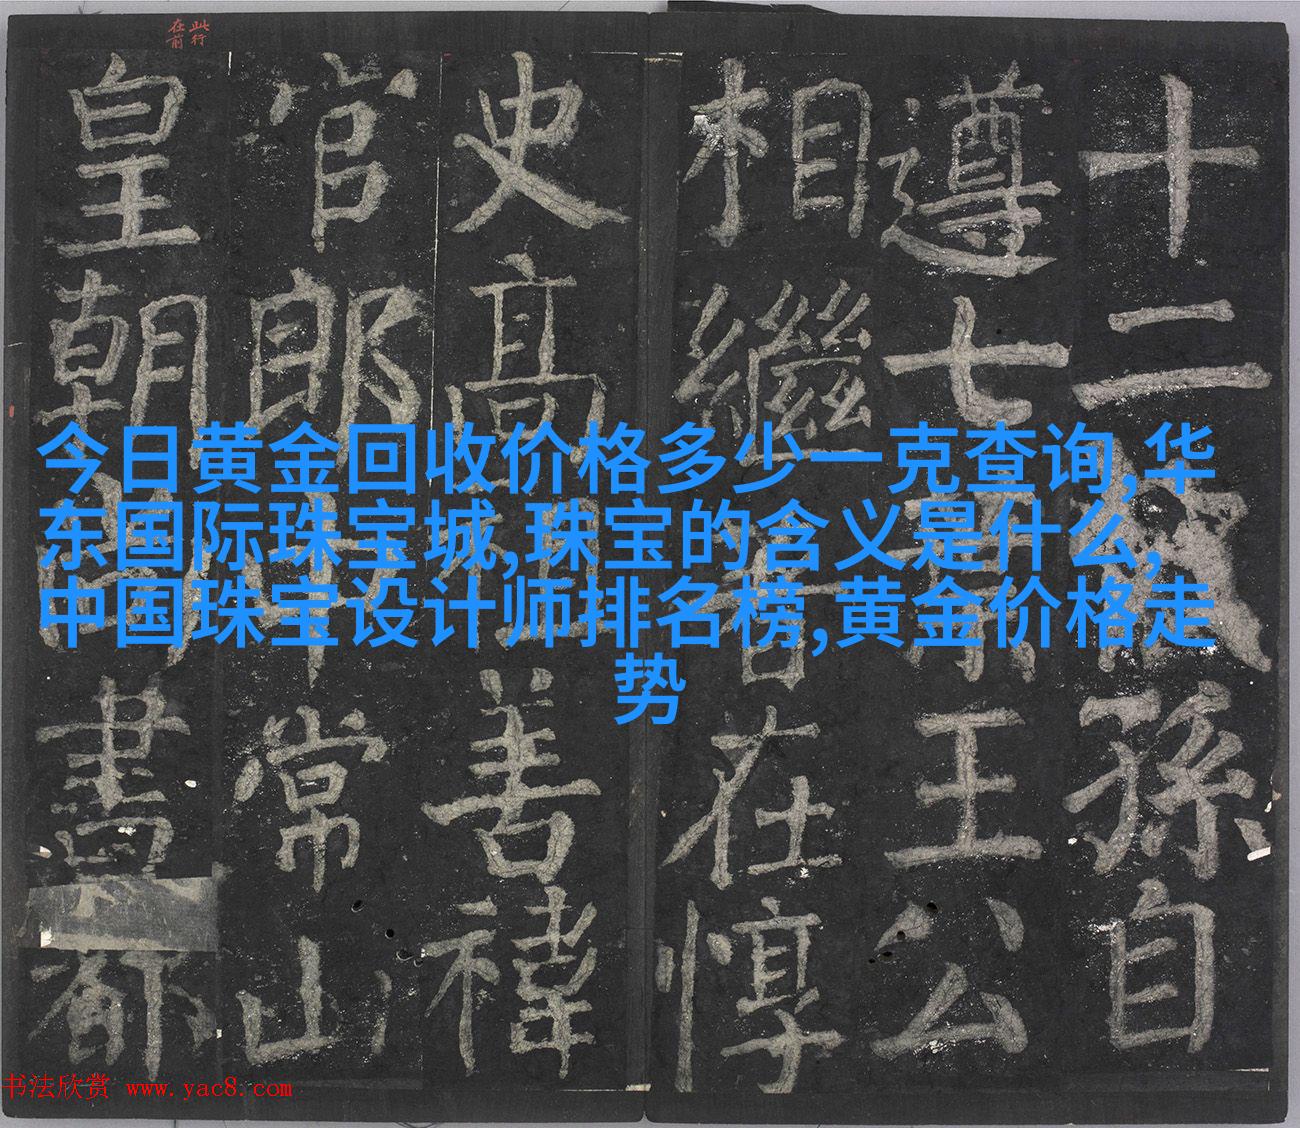 此行
在前
十二孫自
遵七王公
相繼在惇
史高善禕
官郎常山
皇朝書都
今日黄金回收价格多少一克查询,华
东国际珠宝城,珠宝的含义是什么,
中国珠宝设计师排名榜,黄金价格走
势
书法欣赏 www.yac8.com